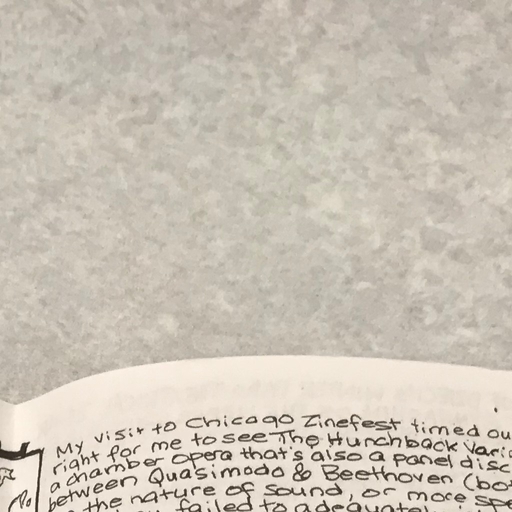 My visit to Chicago Zinefest timed ou
right for me to see The Hunchback Vari
a chamber opera that's also a panel disc
between Quasimodo & Beethoven (bo
the nature of sound, or more spe
failed to adequatel